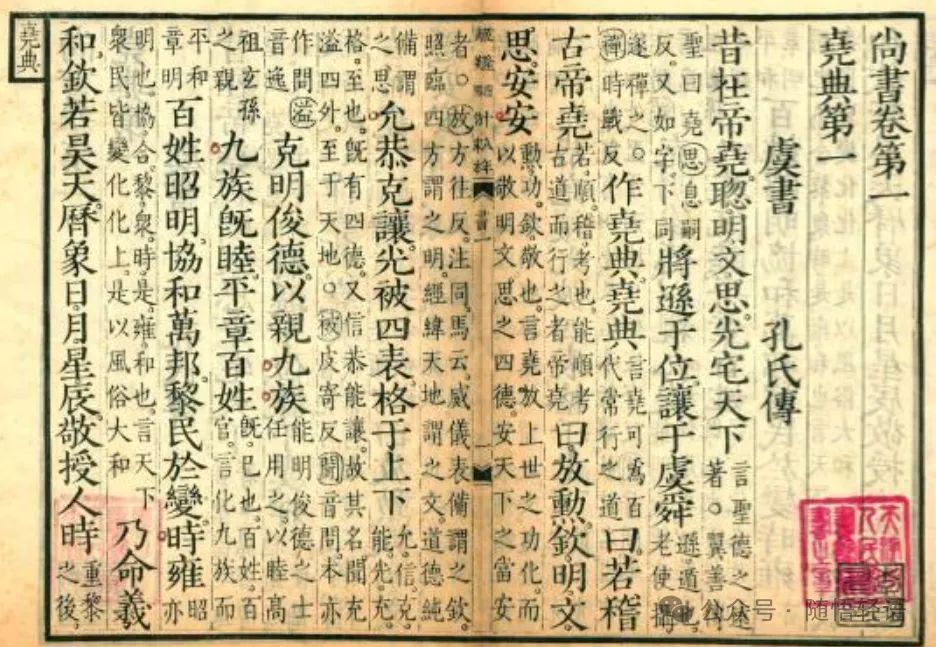 尚書卷第一
堯典第一
虞書 孔氏傳
昔在帝堯聰明文思光宅天下言聖德之遠著○翼善傳
聖曰堯思息嗣反又如字下同將遜于位讓于虞舜遜遁也老使攝
遂禪之○禪時戰反作堯典堯典言堯可為百代常行之道曰若稽
古帝堯若順稽考也能順考古道而行之者帝堯曰放勲欽明文
思安安勳功欽敬也言堯放上世之功化而以敬明文思之四德安天下之當安
者放方往反注同馬云威儀表備謂之欽照臨四方謂之明經緯天地謂之文道德純
備謂之思允恭克讓光被四表格于上下允信克能光充
格至也既有四德又信恭能讓故其名聞充溢四外至于天地○被皮寄反聞音問本亦
作問溢音逸克明俊德以親九族能明俊德之士任用之以睦高
祖玄孫之親九族既睦平章百姓既已也百姓百官言化九族而
平和章明百姓昭明協和萬邦黎民於變時雍昭亦
明也協合黎衆時是雍和也言天下衆民皆變化化上是以風俗大和乃命羲
和欽若昊天曆象日月星辰敬授人時重黎之後
堯典
公众号